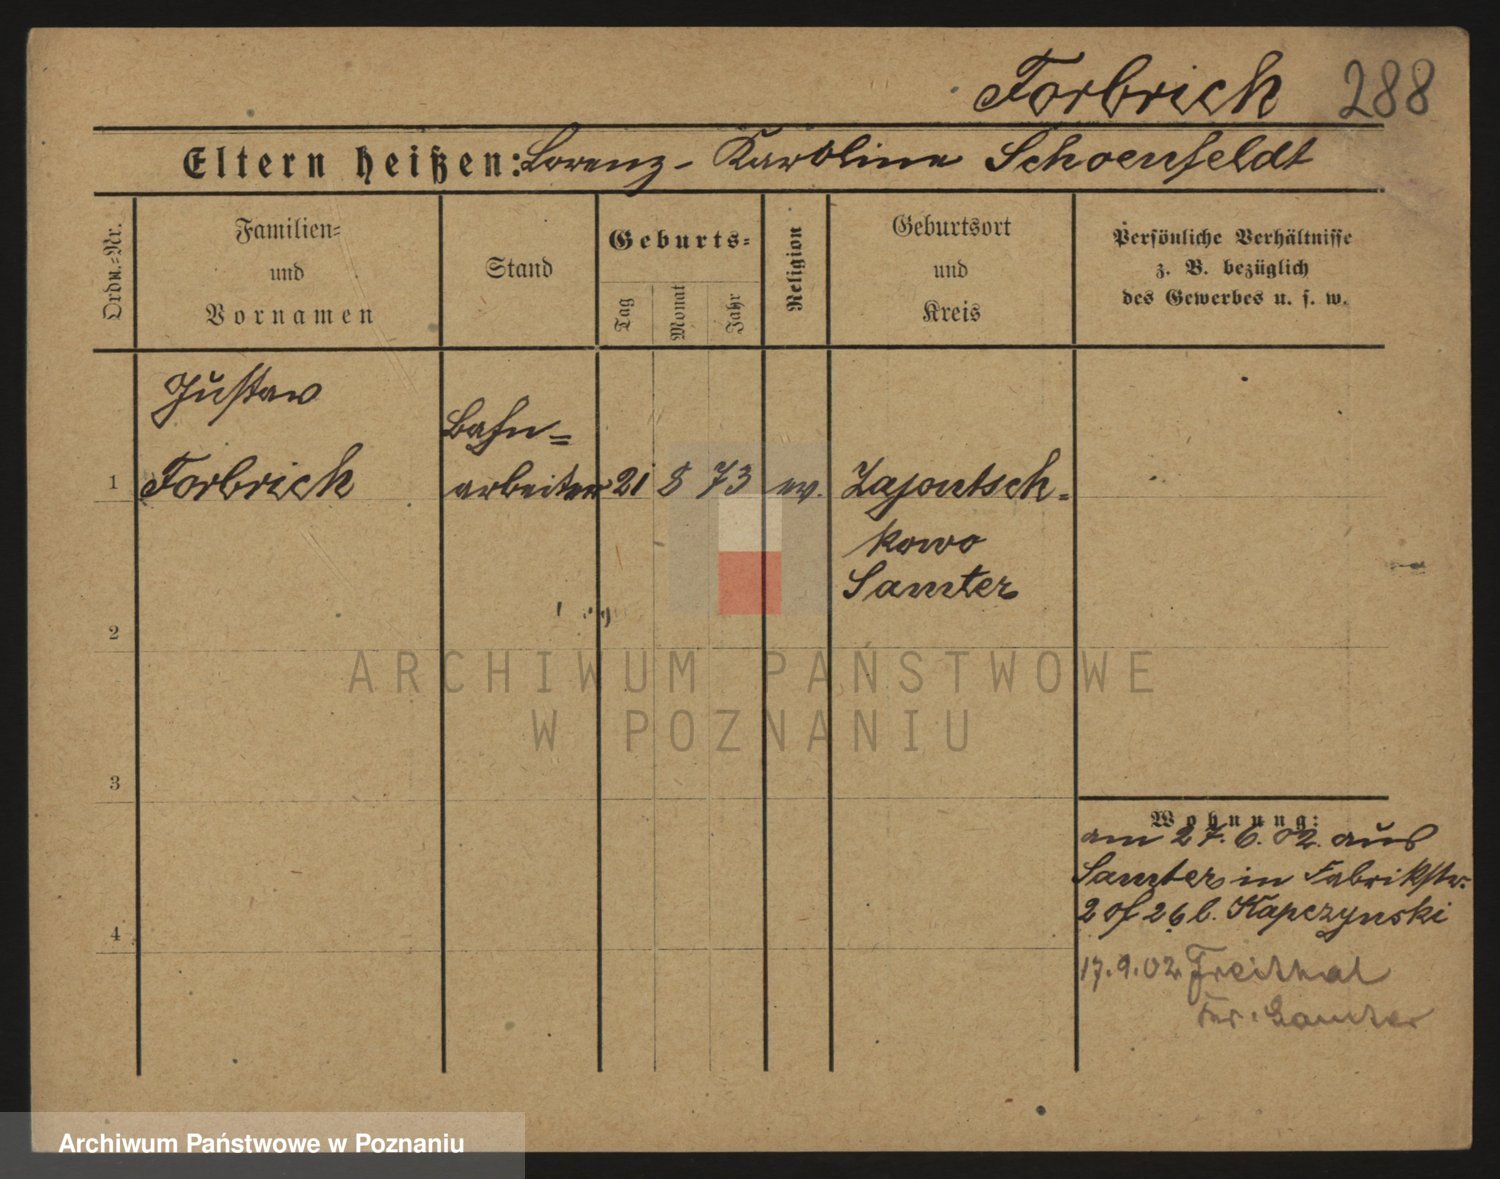 Forbrich 288
Eltern heißen: Lorenz - Karoline Schoenfeldt
Ordn.-Nr.
Familien-
und
Vornamen
Stand
Geburts-
Tag
Monat
Jahr
Religion
Geburtsort
und
Kreis
Persönliche Verhältnisse
z. B. bezüglich
des Gewerbes u. s. w.
Gustav
Bahn=
1 Forbrich arbeiter 21 8 73 ev. Zajontsch-
kowo
Samter
2
ARCHIWUM PAŃSTWOWE
W POZNANIU
3
Wohnung:
am 27.6.02. aus
Samter in Fabrikstr.
2 of 26 b. Kapczynski
4
17.9.02 Freithal
Kr. Samter
Archiwum Państwowe w Poznaniu